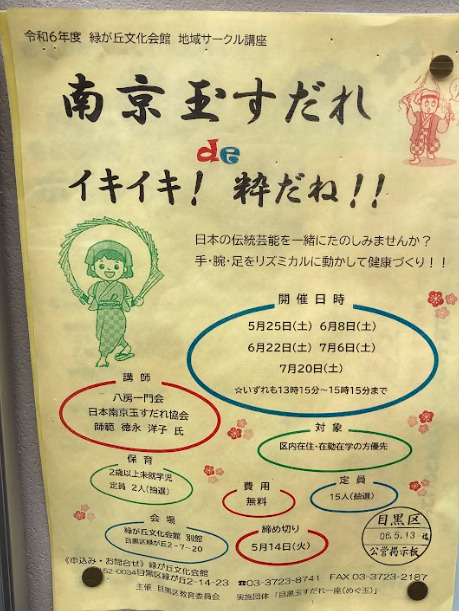 令和6年度 緑が丘文化会館 地域サークル講座
南京玉すだれ
de
イキイキ! 粋だね!!
日本の伝統芸能を一緒にたのしみませんか?
手・腕・足をリズミカルに動かして健康づくり!!
開催日時
5月25日(土) 6月8日(土)
6月22日(土) 7月6日(土)
7月20日(土)
☆いずれも13時15分~15時15分まで
講師
八房一門会
日本南京玉すだれ協会
師範 徳永 洋子 氏
対象
区内在住・在勤在学の方優先
保育
2歳以上未就学児
定員 2人(抽選)
費用
無料
定員
15人(抽選)
会場
緑が丘文化会館 別館
目黒区緑が丘2-7-20
締め切り
5月14日(火)
目黒区
06.5.13 迄
公営掲示板
《申込み・お問合せ》緑が丘文化会館
152-0034目黒区緑が丘2-14-23 ☎03-3723-8741 FAX 03-3723-2187
主催 目黒区教育委員会 実施団体「目黒玉すだれ一座(めぐ玉)」